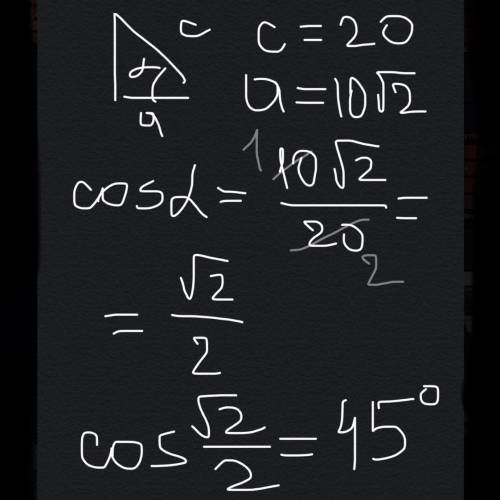 c c = 20
α a = 10√2
a
cosα = 10√2/20 =
1 2
= √2/2
cos √2/2 = 45°